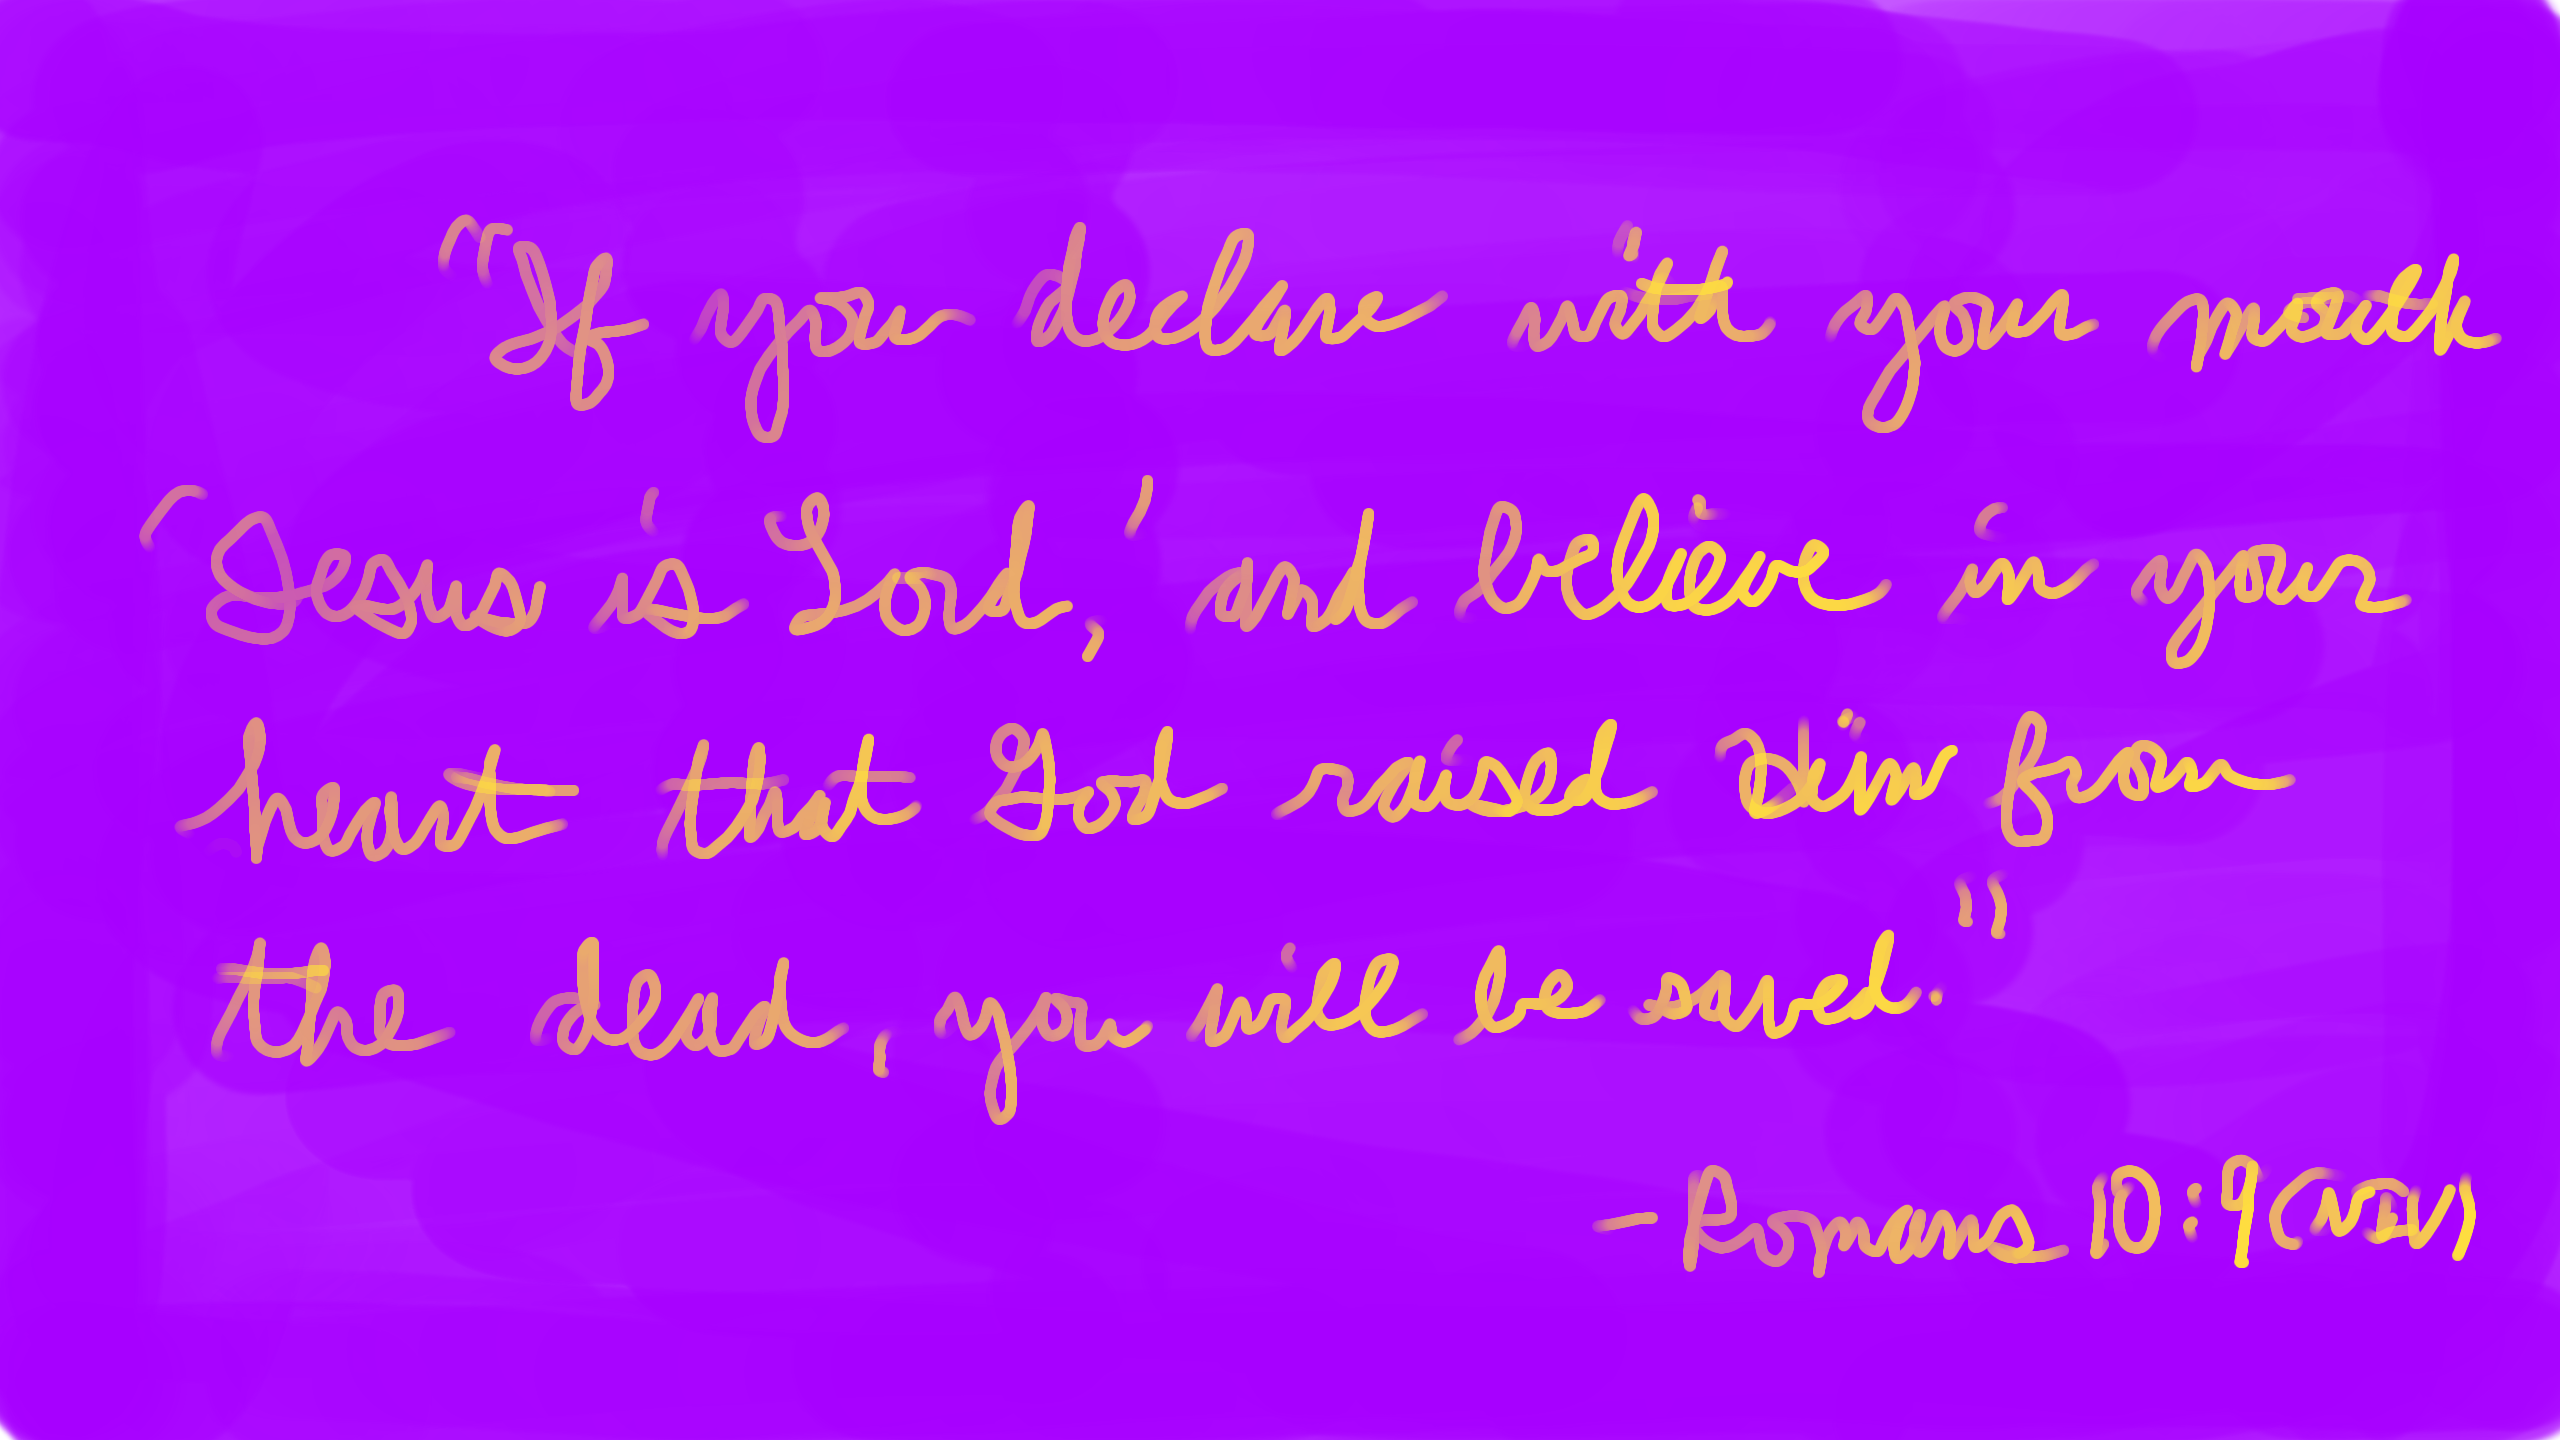 "If you declare with your mouth
'Jesus is Lord,' and believe in your
heart that God raised Him from
the dead, you will be saved."
-Romans 10:9(NIV)